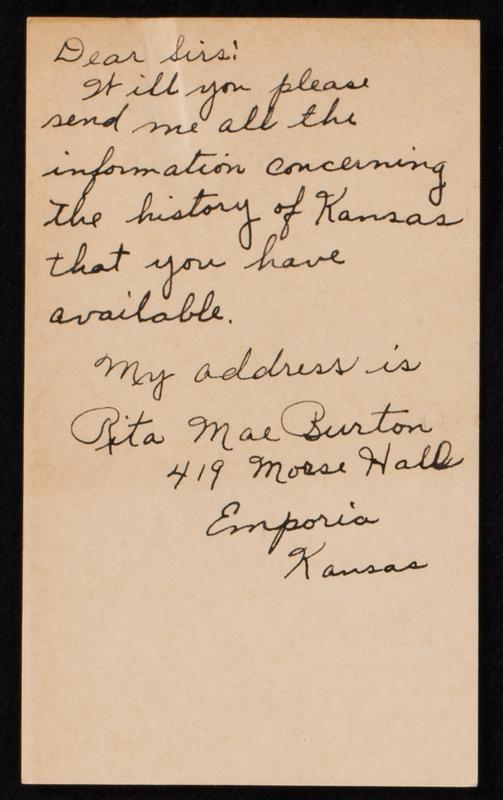 Dear Sirs:
Will you please
send me all the
information concerning
the history of Kansas
that you have
available.
My address is
Rita Mae Burton
419 Morse Hall
Emporia
Kansas